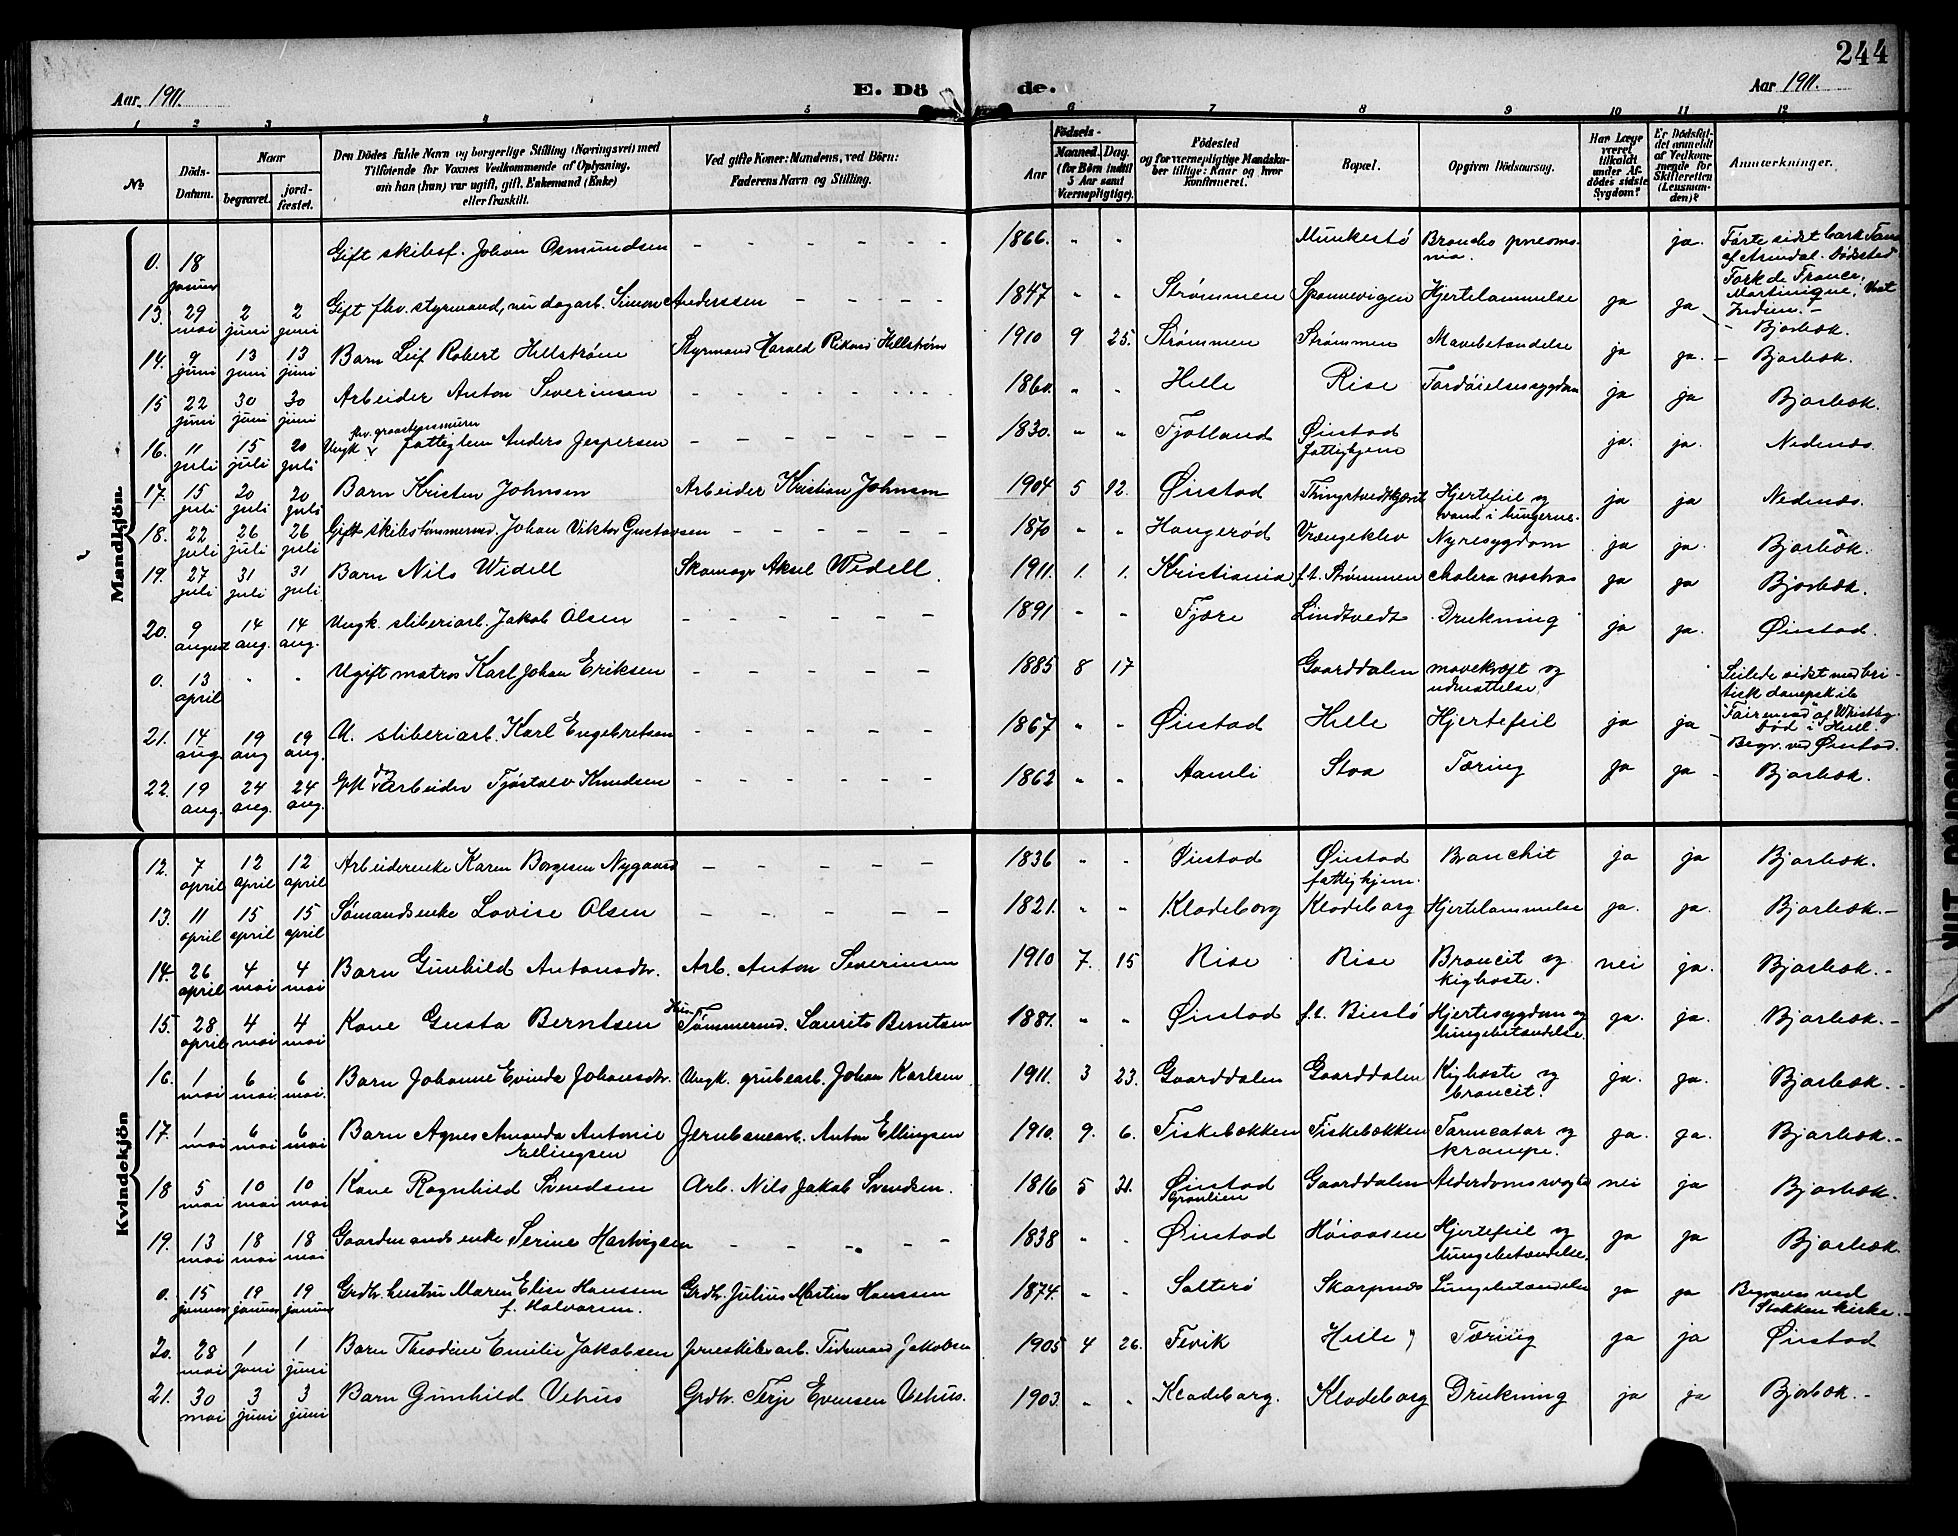 244
Aar 1911.
E. Döde.
Aar 1911.
1 2 3 4 5 6 7 8 9 10 11 12
No.
Döds-Datum.
Naar
begravet.
jordfæstet.
Den Dödes fulde Navn og borgerlige Stilling (Næringsvei) med
Tilföiende for Voxnes Vedkommende af Oplysning,
om han (hun) var ugift, gift, Enkemand (Enke)
eller fraskilt.
Ved gifte Koner: Mandens, ved Börn:
Faderens Navn og Stilling.
Födsels-
Aar
Maaned. Dag.
(for Börn indtil
5 Aar samt
Værnepligtige).
Födested
og for værnepligtige Mandskaber tillige: Naar og hvor
konfirmeret.
Bopæl.
Opgiven Dödsaarsag.
Har Læge været tilkaldt under Afdødes sidste Sygdom?
Er Dödsfaldet anmeldt af Vedkommende for Skifteretten (Lensmanden)?
Anmærkninger.
Mandkjön.
0. 18 januar Gift skibsf. Johan Osmundsen - - 1866. " " Munkestø Broncho pneomonia. ja. Førte sidst bark af Arendal. Dødssted Fork de France, Martinique, Vest Indien.-
13. 29 mai 2 juni 2 juni Gift fhv. styrmand, nu dagarb. Simon Anderssen - - 1847 " " Strømmen Spannevigen Hjertelammelse ja ja - Bjorbæk.
14. 9 juni 13 juni 13 juni Barn Leif Robert Hellstrøm Styrmand Harald Rikard Hellstrøm 1910 9 25. Strømmen Strømmen Mavebetændelse ja ja. - Bjorbæk.
15 22 juni 30 juni 30 juni Arbeider Anton Severinsen - - 1860. " " Hille Rise Fordøielsessygdom ja ja Bjorbæk.
16. 11 juli 15 juli 20 juli Ungk. fhv. graastensmurer fattiglem Anders Jespersen - - 1830. " " Fjotland Øiestad fattighjem ja. ja. Nedenæs.
17. 15 juli 20 juli 20 juli Barn Kristen Johnsen Arbeider Kristian Johnsen 1904 5 12. Øiestad Hjertefeil og vand i lungerne. ja ja Nedenæs.
18. 22 juli 26 juli 26 juli Gift skibstømmermd. Johan Viktor Gustavsen - - 1870 " " Haugerød Vrængeklev Nyresygdom ja ja. Bjorbæk.
19. 27 juli 31 juli 31 juli Barn Nils Widell Skomagr Aksel Widell. 1911. 1. 1. Kristiania f.t. Strømmen cholera nostras ja ja Bjorbæk.
20. 9 august 14 aug. 14 aug. Ungk. sliberiarb. Jakob Olsen - - 1891 " " Fjære Lindtvedt Drukning ja ja. Øiestad.
0. 13 april " " Ugift matros Karl Johan Eriksen - - 1885 8 17 Gaarddalen mavekræft og udmattelse. Seilede sidst med britisk dampskib "Fairmead" af Whitby. Død i Hull. Begr. ved Øiestad.
21. 14 aug. 19 aug 19 aug. U. sliberiarb. Karl Engebretsen - - 1867 " " Øiestad Hille Hjertefeil ja ja
22. 19 aug. 24 aug. 24 aug. Gift Arbeider Tjøstolv Knudsen - - 1862 " " Aamli Stoa Tæring ja ja - Bjorbæk.
Kvindekjön
12. 7 april 12 april 12 april Arbeiderenke Karen Borgesen Nygaard - - 1836 " " Øiestad Øiestad fattighjem. Bronchit ja ja Bjorbæk.
13. 11 april 15 april 15 april Sømandsenke Lovise Olsen - - 1821. " " Klodeborg Klodeborg Hjertelammelse ja. ja. Bjorbæk.-
14. 26 april 4 mai 4 mai Barn Gunhild Antonsdtr. Arb. Anton Severinsen 1910 7. 15 Rise Rise Broncit og kighoste. nei ja. Bjorbæk.-
15. 28. april 4 mai 4 mai Kone Gusta Berntsen Tømmermd. Laurits Berntsen 1881. " " Øiestad f.t. Biestø Hjertesygdom og lungebetændelse. ja. ja. Bjorbæk.-
16. 1 mai 6 mai. 6 mai. Barn Johanne Evinda Johansdtr. Ungk. grubearb. Johan Karlsen 1911. 3 23. Gaarddalen Gaarddalen Kighoste og broncit. ja. ja. Bjorbæk.-
17. 1 mai 6 mai 6 mai Barn Agnes Amanda Antonie Ellingsen Jernbanearb. Anton Ellingsen 1910. 9. 6. Fiskebækken Fiskebækken Tarmcatar og krampe. ja. ja. Bjorbæk.-
18 5 mai 10 mai 10 mai Kone Ragnhild Svendsen Arb. Nils Jakob Svendsen. 1816 5 21. Øiestad Graalien Gaarddalen Alderdomssvaghed nei ja Bjorbæk.
19. 13 mai 18 mai 18 mai Gaardmandsenke Serine Hartvigsen - - 1838 " " Øiestad Høiaasen Hjertefeil og lungebetændelse. ja ja Bjorbæk.
0. 15 januar 19 januar 19 januar Grdbr. hustru Maren Elise Hanssen f. Halvorsen. Grdbr. Julius Martin Hanssen 1874. " " Salterø Skarpnæs Lungebetændelse ja ja Begraves ved Stokken kirke.-
20. 28 mai 1 juni 1 juni Barn Theodine Emilie Jakobsen Jernskibsarb. Tidemand Jakobsen 1905 4 26. Fevik Hille Tæring ja ja Øiestad
21. 30 mai 3 juni 3 juni Barn Gunhild Vehus Grdbr. Terje Evensen Vehus. 1903. " " Klodeborg. Klodeborg Drukning ja ja Bjorbæk.-